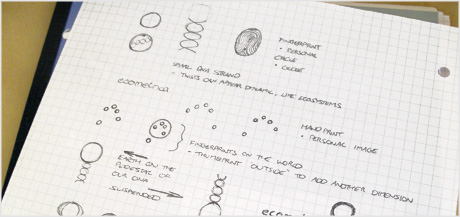 FINGERPRINT
• PERSONAL
CIRCLE
• CIRCLE
SMALL DNA STRAND
- TWISTS CAN APPEAR DYNAMIC, LIKE ECOSYSTEMS
ecometrica
HANDPRINT
• PERSONAL IMAGE
FINGERPRINTS ON THE WORLD
- THUMBPRINT "OUTSIDE" TO ADD ANOTHER DIMENSION
EARTH ON THE
PEDESTAL OF
OUR DNA
SUSPENDED